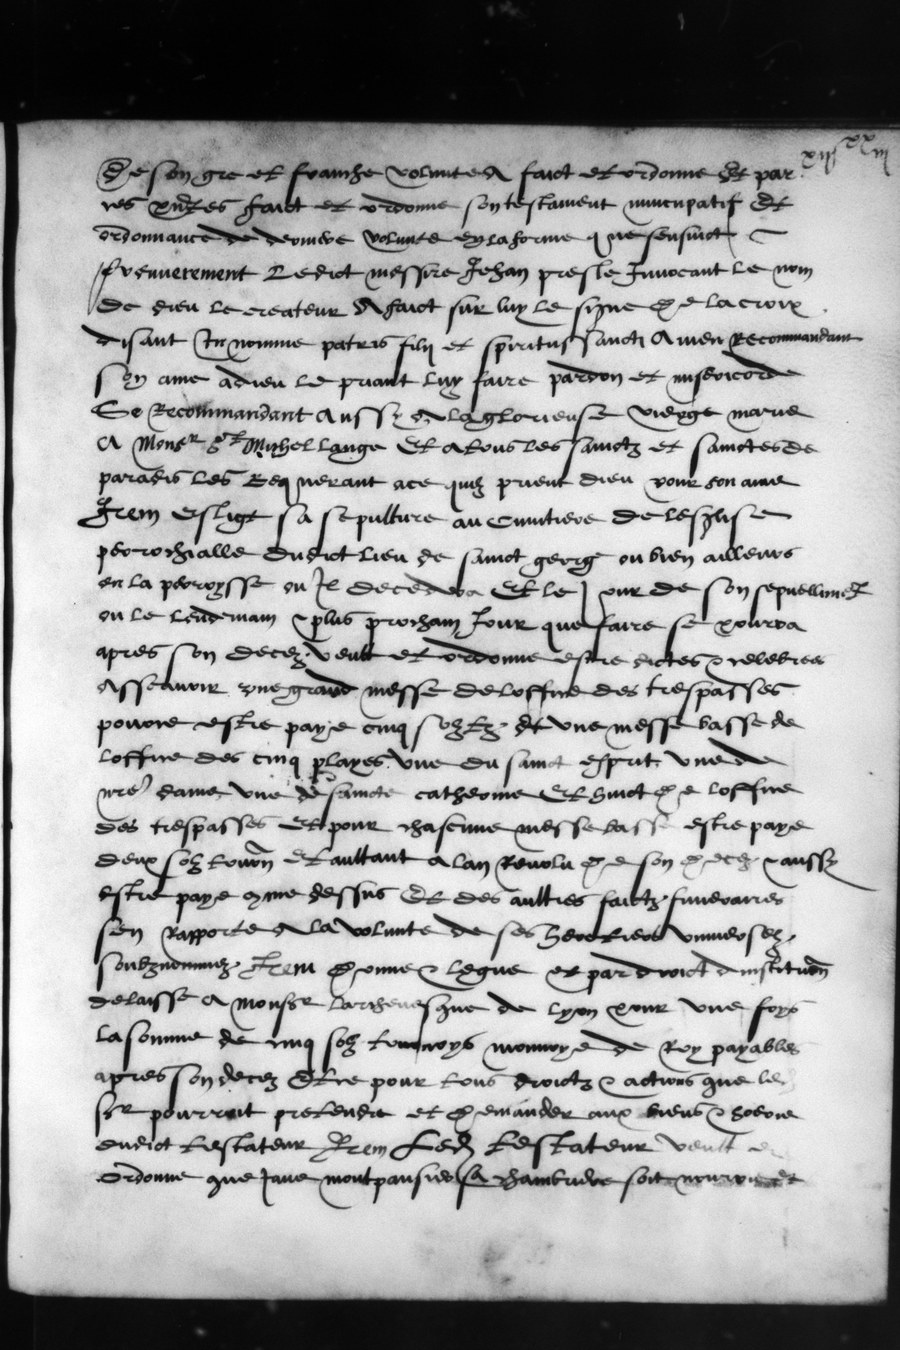 xiij xx iij
De son gre et franche volunte A faict et ordonne Et par
ces pntes faict et ordonne son testament nuncupatif Et
ordonnance de derniere volunte en la forme que sensuict
Premierement Ledict messire Jehan presle Invocant le nom
de dieu le createur A faict sur luy le signe de la croix
disant In nomine patris filij et spiritus sancti Amen Recommandant
son ame a dieu le priant luy faire pardon et misericorde
Se Recommandant Aussy A la glorieuse vierge marie
A Monsr st Michel lange Et A tous les sainctz et sainctes de
paradis les Requerant ace quilz prient dieu pour son ame
Item eslige sa sepulture au Cimitiere de leglise
perrochialle dudict lieu de sainct george ou bien ailleurs
en la perroysse ou Il decedera Et le Jour de son sepvellimet
ou le lendemain & plus prochain Jour que faire se pourra
apres son decez veult et ordonne estre dictes & celebrees
Asscavoir une grand messe de loffice des trespasses
pour estre paye cinq solz tz Et une messe basse de
loffice des cinq playes une du sainct esprit une de
nre dame une de saincte catherine Et huict de loffice
des trespasses Et pour chascune messe basse estre paye
deux solz tourn Et aultant A lan Revolu de son decez & aussy
estre paye come dessus Et des aultres faictz funeraires
sen Rapporte A la volunte de ses heretiers universelz
soubznommez Item donne & legue et par droict dinstitun
delaisse A monsr larchevesque de lyon pour une foys
la somme de cinq solz tournoys monnoye de Roy payables
apres son decez Et ce pour tous droictz & actions que led
sr pourroit pretendre et demander aux biens & hoerie
dudict testateur Item Led testateur veult et
ordonne que Jane montpansier sa chambriere soit nourrie et